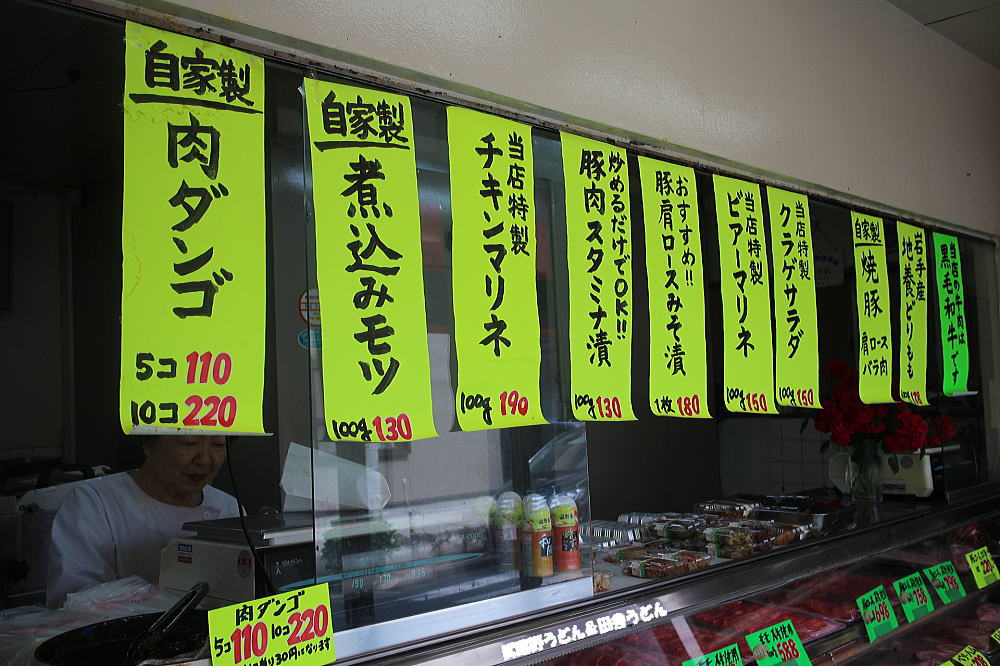 自家製
肉ダンゴ
5コ 110
10コ 220
自家製
煮込みモツ
100g 130
当店特製
チキンマリネ
100g 190
炒めるだけでOK!!
豚肉スタミナ漬
100g 130
おすすめ!!
豚肩ロースみそ漬
1枚 180
当店特製
ビアーマリネ
100g 150
当店特製
クラゲサラダ
100g 150
自家製
焼豚
肩ロース
バラ肉
岩手産
地養どりもも
100g 128
当店の牛肉は
黒毛和牛です
肉ダンゴ
5コ110 10コ220
698
758
798
588